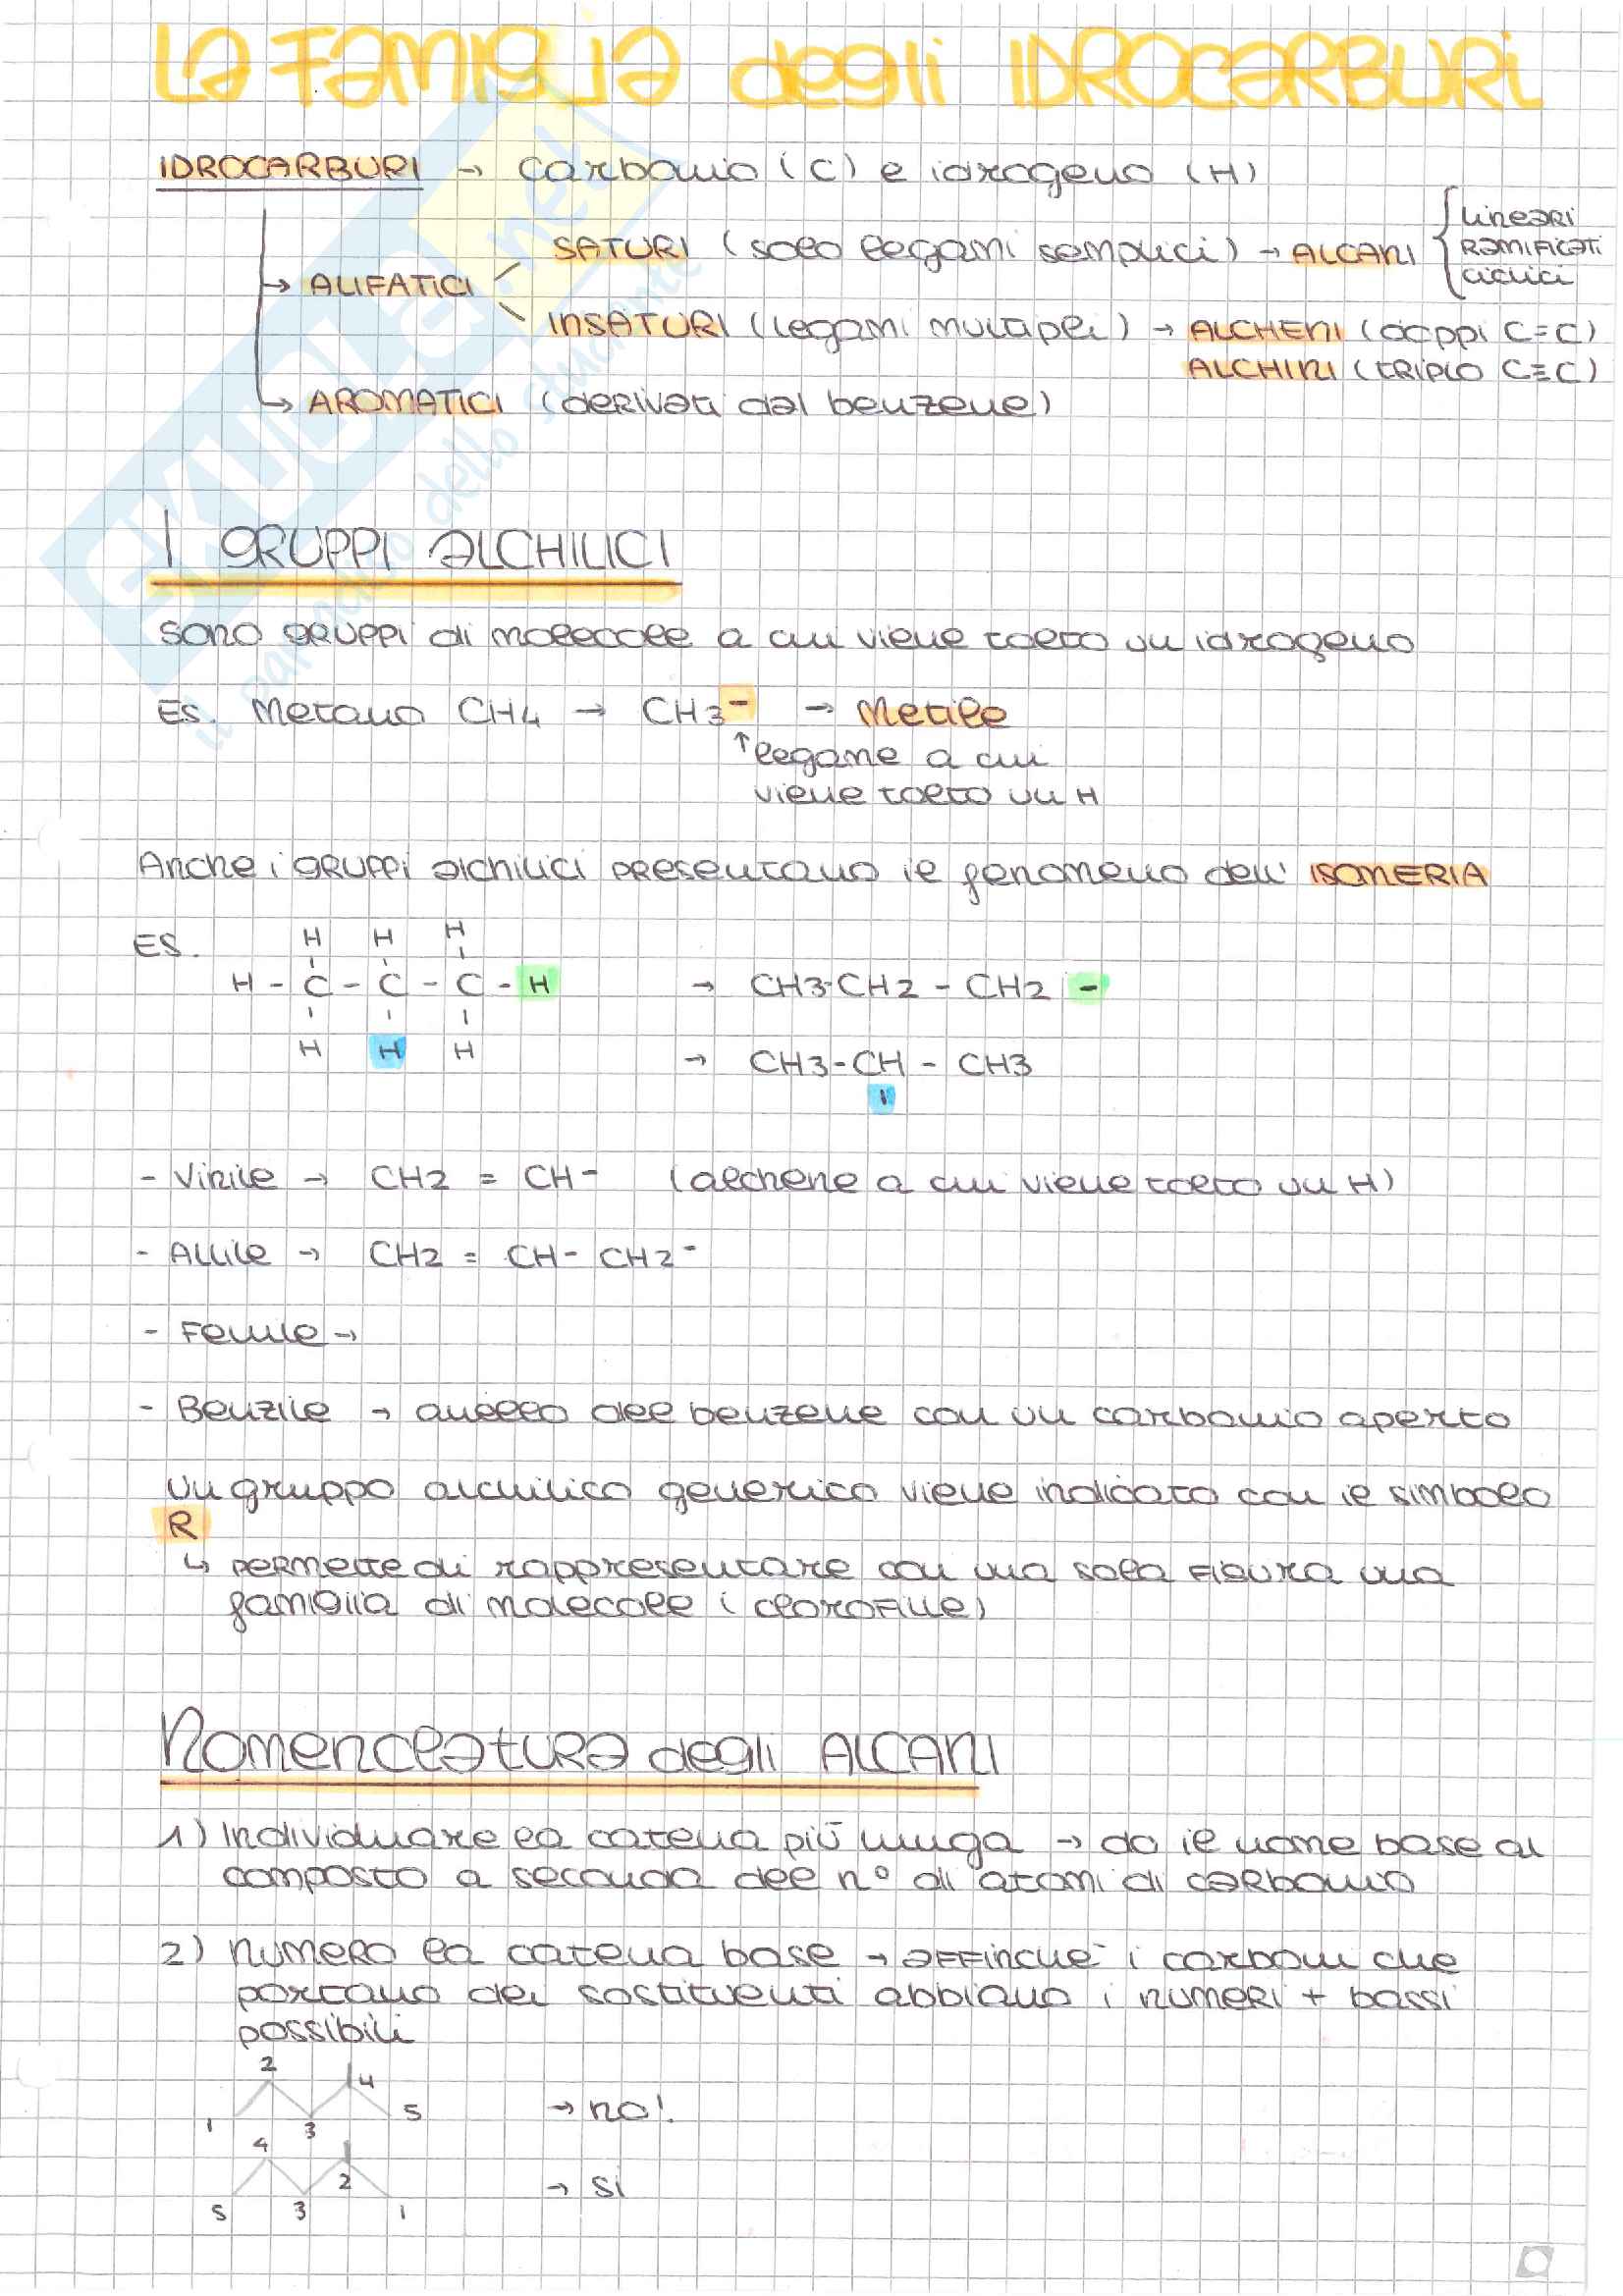 La Famiglia degli IDROCARBURI
IDROCARBURI → carbonio (C) e idrogeno (H)
lineari
SATURI (solo legami semplici) → ALCANI
Ramificati
→ ALIFATICI
ciclici
INSATURI (legami multipli) → ALCHENI (doppi C=C)
ALCHINI (TRIPLO C≡C)
→ AROMATICI (derivati dal benzene)
I GRUPPI ALCHILICI
sono gruppi di molecole a cui viene tolto un idrogeno
Es. Metano CH4 → CH3- → Metile
↑ legame a cui
viene tolto un H
Anche i gruppi alchilici presentano il fenomeno dell' ISOMERIA
ES.
H H H
H - C - C - C - H → CH3-CH2 - CH2 -
H H H → CH3-CH - CH3
- Vinile → CH2 = CH- (alchene a cui viene tolto un H)
- Allile → CH2 = CH- CH2-
- Fenile →
- Benzile → anello del benzene con un carbonio aperto
Un gruppo alchilico generico viene indicato con il simbolo
R
↳ permette di rappresentare con una sola figura una
famiglia di molecole (clorofille)
Nomenclatura degli ALCANI
1) Individuare la catena più lunga → da il nome base al
composto a seconda del n° di atomi di carbonio
2) numero la catena base → affinché i carboni che
portano dei sostituenti abbiano i numeri + bassi
possibili
2 4
1 3 5 → no!
4 2
5 3 1 → si
SKUOLA.net
il paradiso dello studente